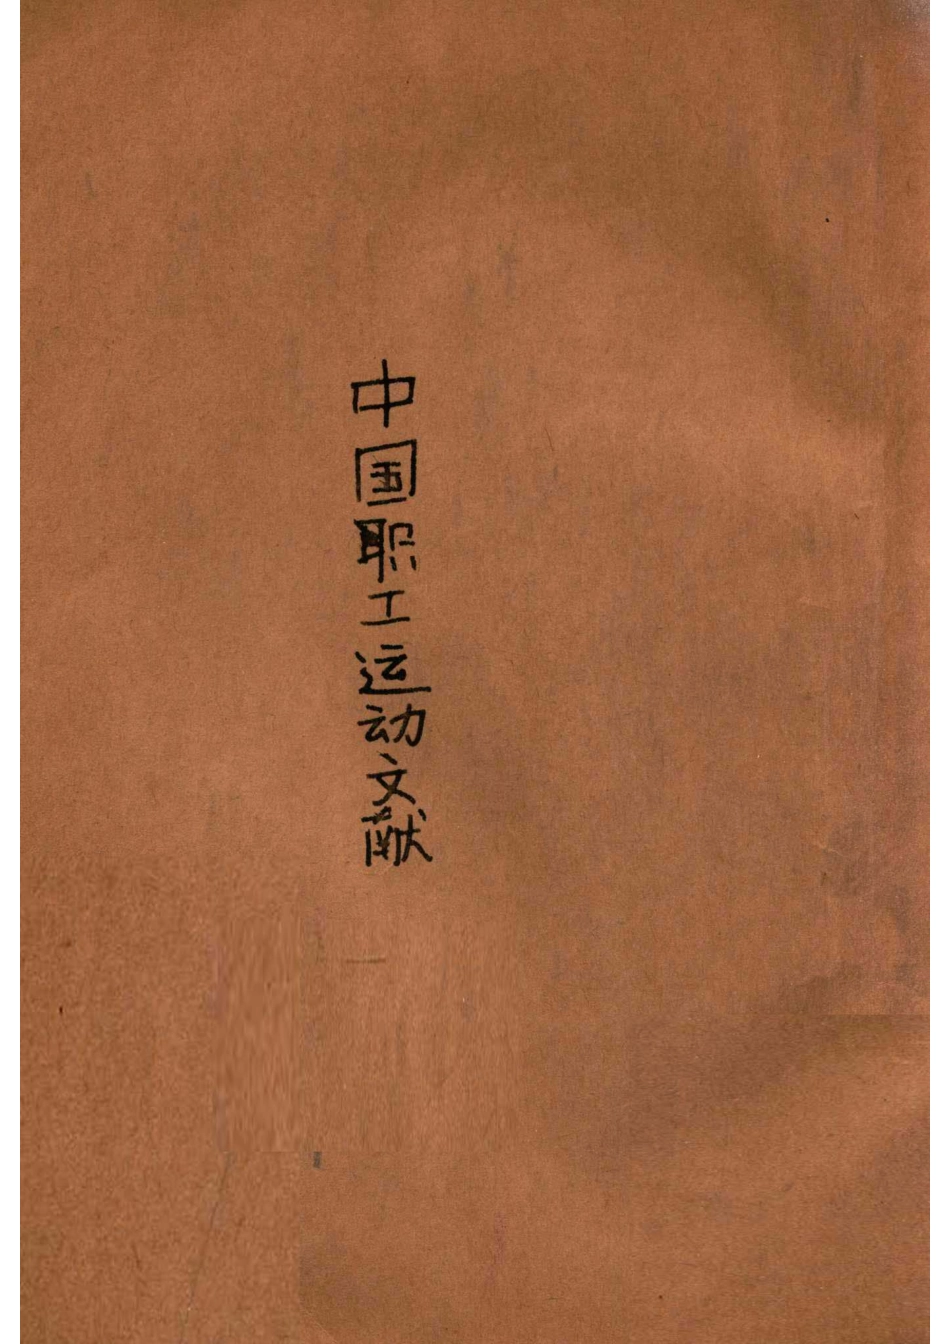 中国职工运动文献